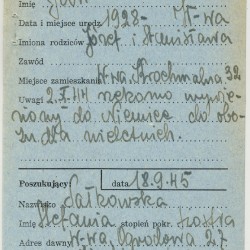 Imię Józef
Data i miejsce urodz. 1928 - W-wa
Imiona rodziców Józef i Stanisława
Zawód
Miejsce zamieszkania W-wa, Krochmalna 32
Uwagi 2.X 44 rzekomo wywie-
ziony do Niemiec do obo-
zu dla nieletnich.
Poszukujący: data 18.9.45
Nazwisko Sałkowska
Imię Stefania stopień pokr. siostra
Adres dawny W-wa, Ogrodowa 27